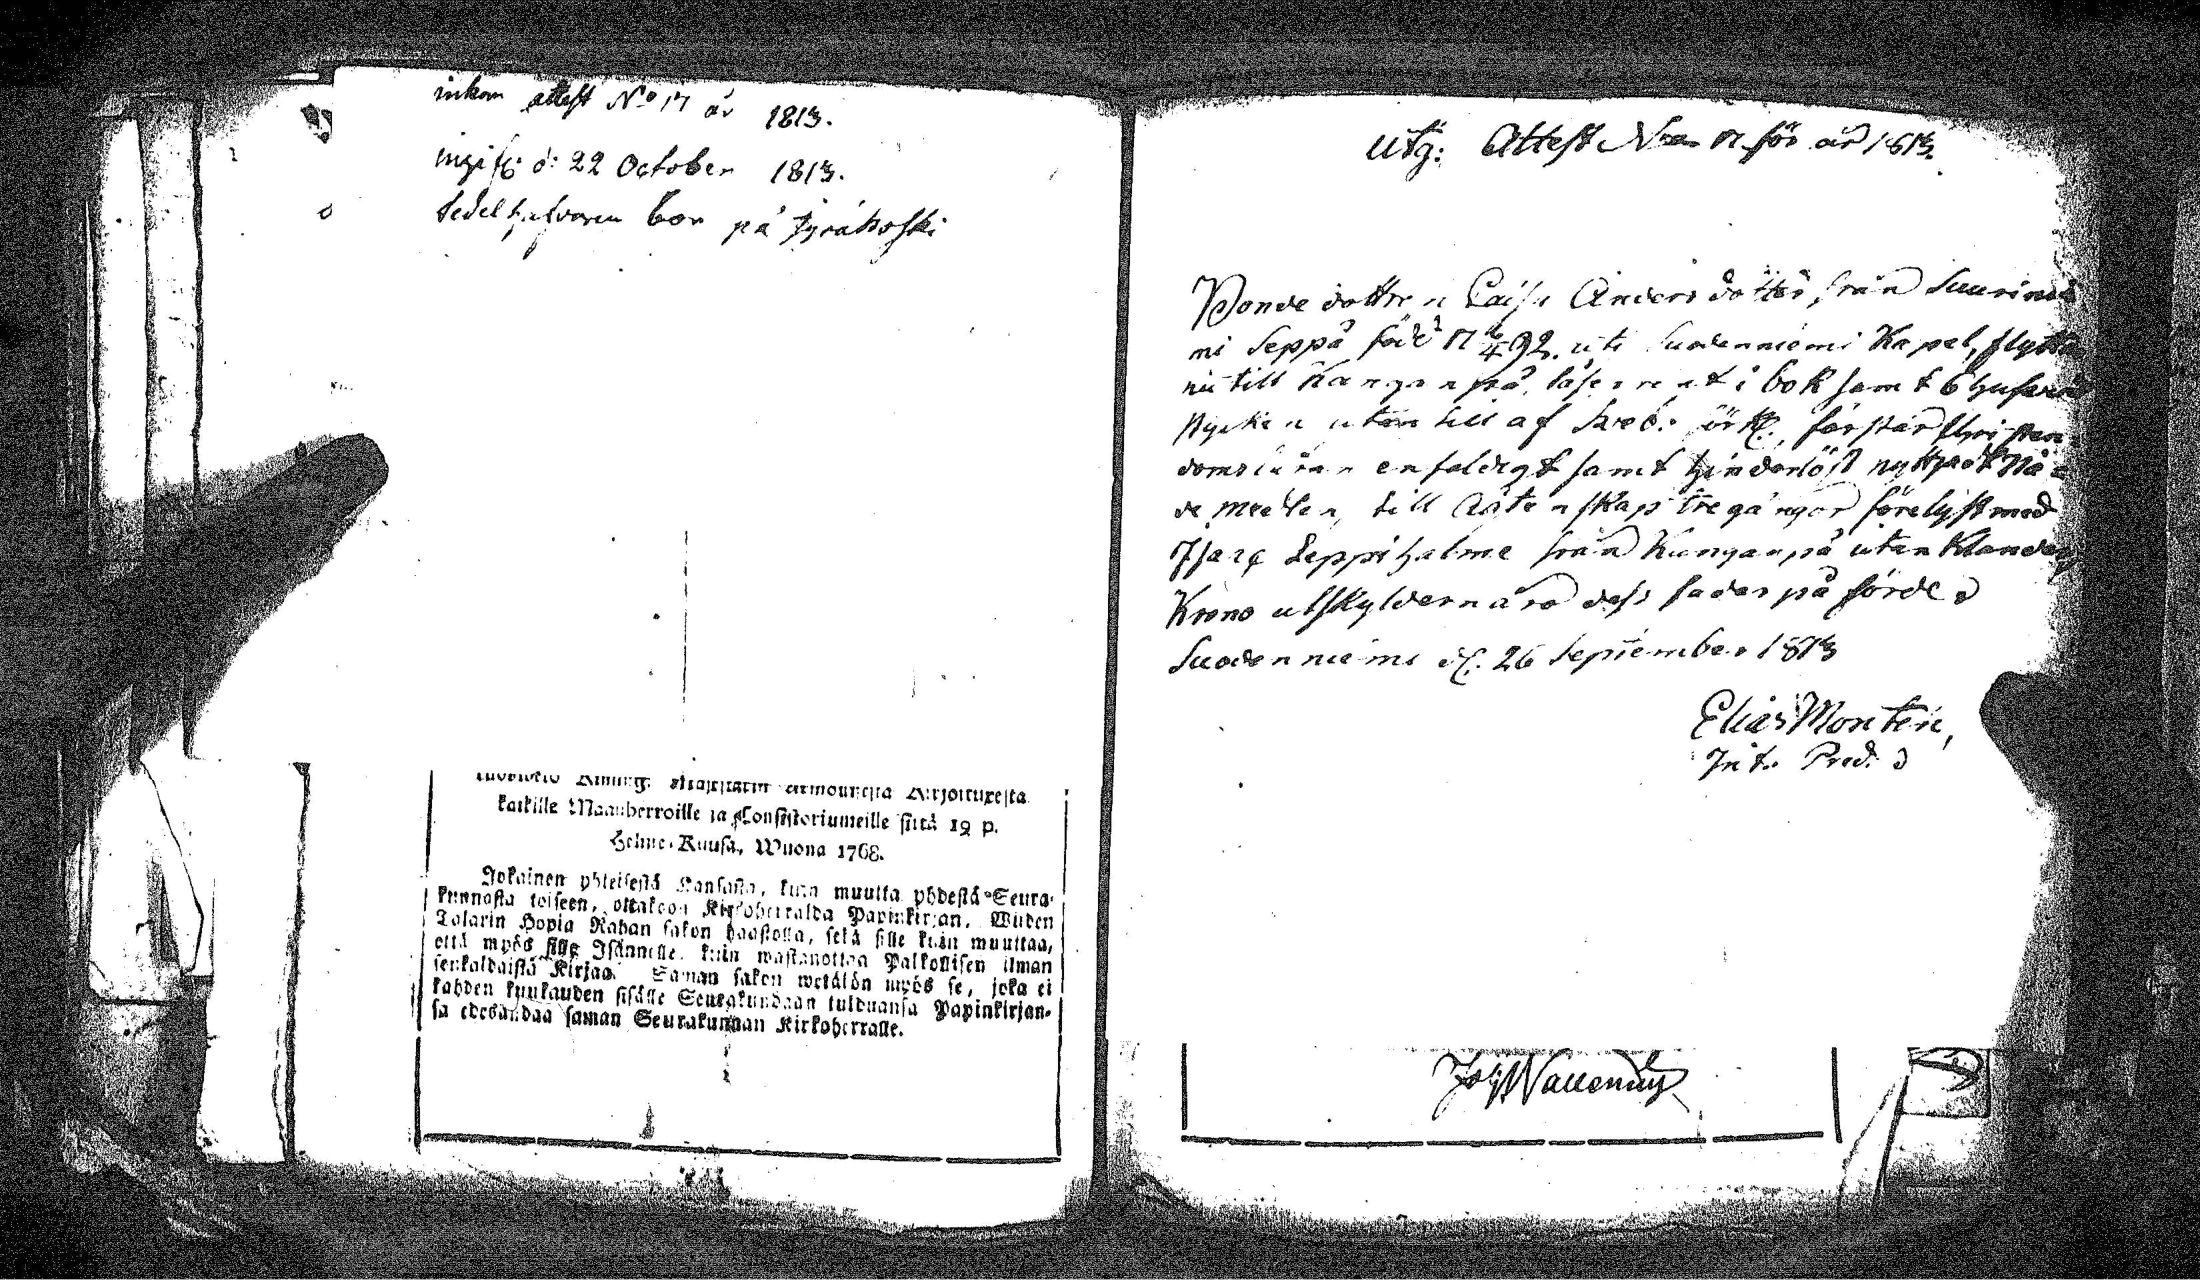 inkom attest No 17 år 1813.
ingift d: 22 October 1813.
sedelhafvaren bor på Jyräkoski
kaikille Maanherroille ja Consistoriumeille siitä 19 p.
Helme-Kuusa, Wuona 1768.
Jokainen yhteisestä Kansasta, kuin muutta yhdestä Seura-
kunnasta toiseen, ottakoon Kirkoherralda Papinkirjan, Wiiden
Talarin Hopia Rahan sakon haastolla, sekä sille kuin muuttaa,
että myös sille Isännelle, kuin wastanottaa Palkollisen ilman
senkaldaistä Kirjaa. Saman sakon wetälön myös se, joka ei
kahden kuukauden sisälle Seurakundaan tulduansa Papinkirjan-
sa edesandaa saman Seurakunnan Kirkoherralle.
Utg: Attest N:o 17 för år 1813.
Bonde dottren Caisa Anders dotter, från Suurinie
mi Seppä född 17 92. uti Suodenniemi Kapel, flyttar
nu till Kanganpä, läser rent i bok samt 6 hufvud
stycken utan till af Sved: förstår christen
doms läran enfaldigt samt hinderlöst nyttjat Nå
de medlen, till Äctenskap tre gångor förelyst med
Leppihalme från Kanganpä utan Klander,
Krono utskylderna äro dess fader på förde
Suodenniemi d. 26 September 1813
Elias Monten,
Pred: